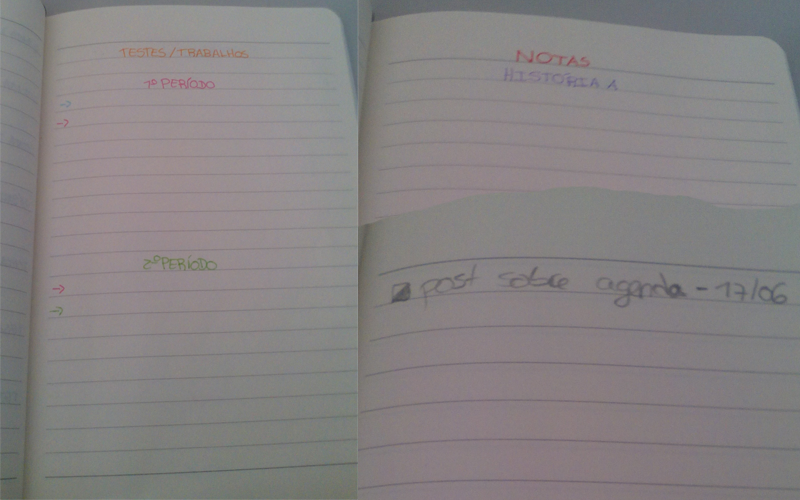 TESTES/TRABALHOS
1º PERÍODO
→
→
2º PERÍODO
→
→
NOTAS
HISTÓRIA A
post sobre agenda - 17/06